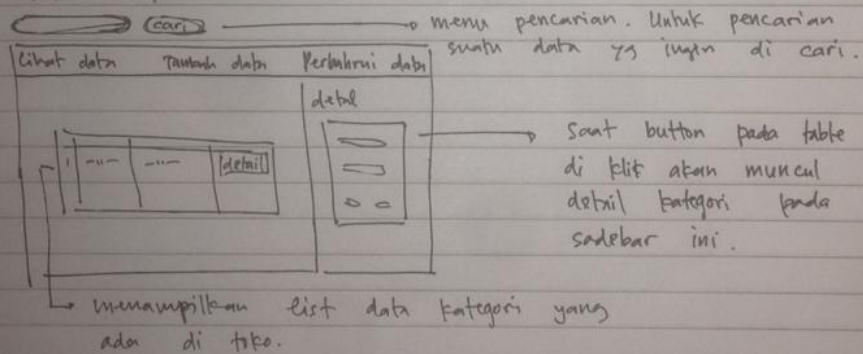 cari
menu pencarian. Untuk pencarian
suatu data yg ingin di cari.
Lihat data Tambah data Perbahrui data
detail
1 -"- -"- detail
Saat button pada table
di klik akan muncul
detail kategori pada
sadebar ini.
menampilkan list data kategori yang
ada di toko.